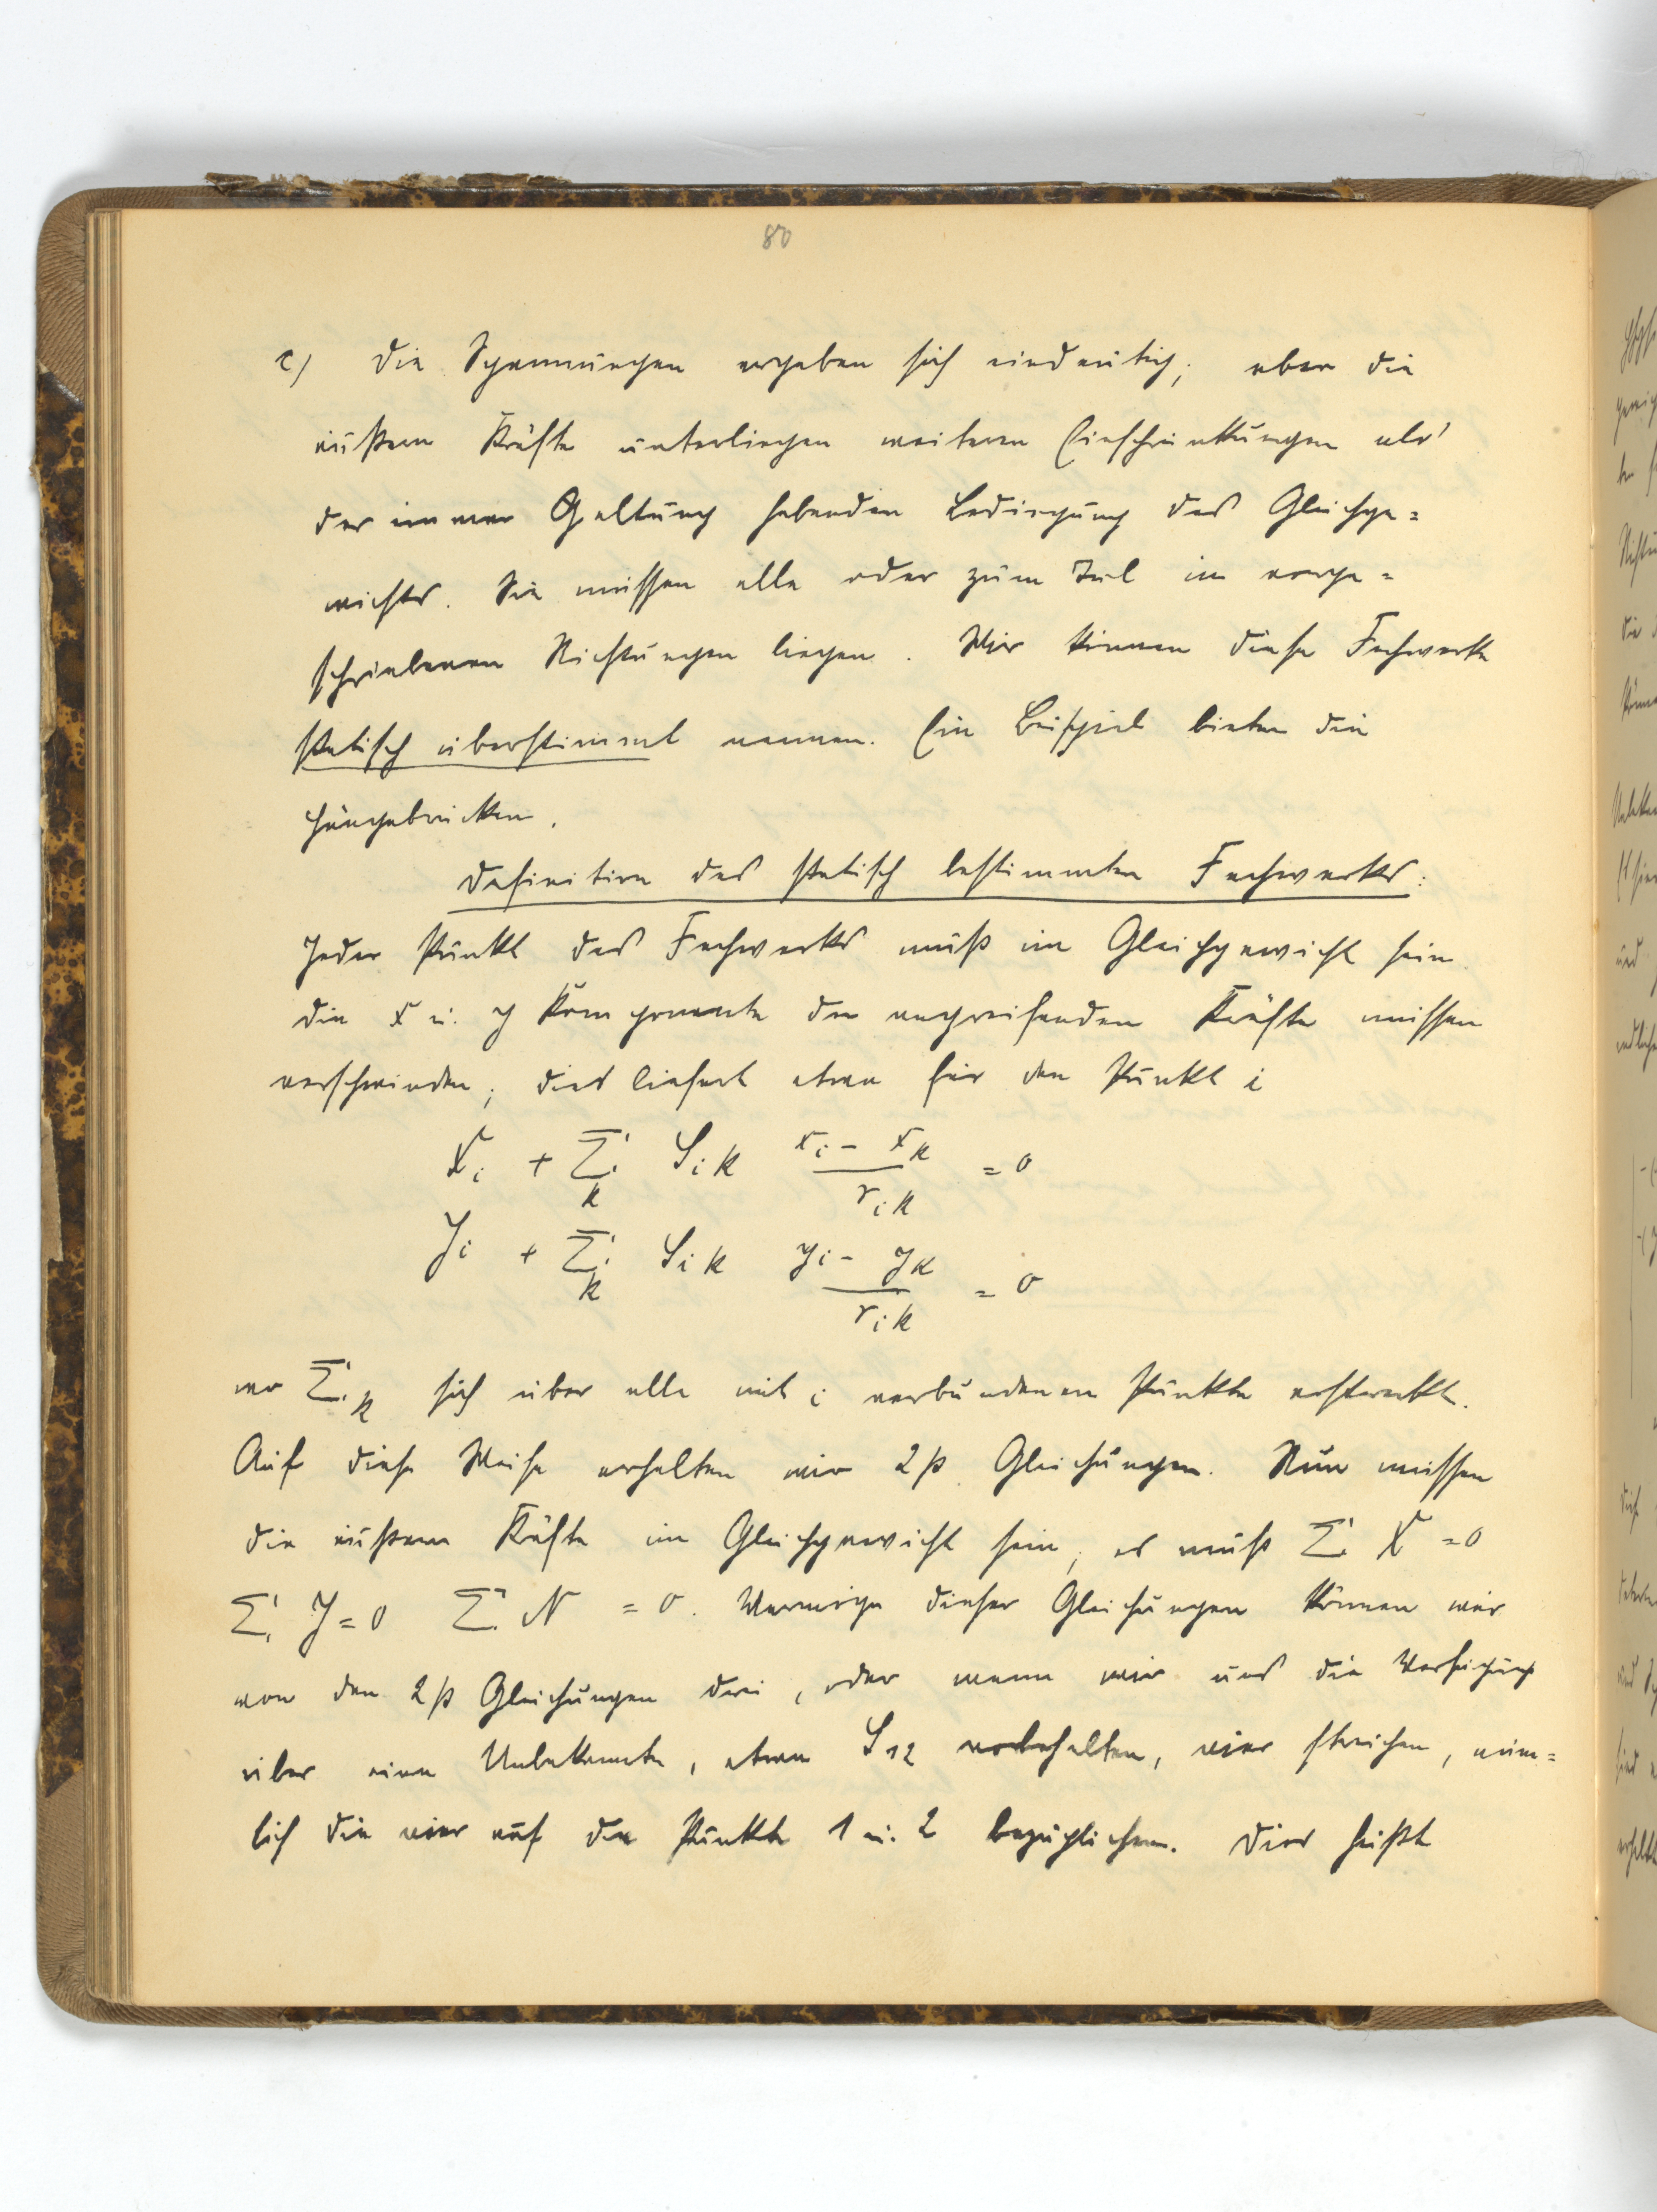 80
c) Die Spannungen ergeben sich eindeutig; aber die
äußern Kräfte unterliegen weiteren Einschränkungen als
der immer Geltung habenden Bedingung des Gleichge=
wichts. Sie müssen alle oder zum Teil in vorge=
schriebenen Richtungen liegen. Wir können diese Fachwerke
statisch überstimmt nennen. Ein Beispiel bieten die
Hängebrücken.
Definition des statisch bestimmten Fachwerks:
Jeder Punkt des Fachwerks muß im Gleichgewicht sein
die x u. y Komponente der angreifenden Kräfte müssen
verschwinden; dies liefert etwa für den Punkt i
X_i + Σ_k S_ik (x_i - x_k)/r_ik = 0
Y_i + Σ_k S_ik (y_i - y_k)/r_ik = 0
wo Σ_k sich über alle mit i verbundenen Punkte erstreckt.
Auf diese Weise erhalten wir 2p Gleichungen. Nun müssen
die äußern Kräfte im Gleichgewicht sein, es muß Σ X = 0
Σ Y = 0 Σ N = 0. Vermöge dieser Gleichungen können wir
von den 2p Gleichungen drei, oder wenn wir uns die Verfügung
über eine Unbekannte, etwa S_12 vorbehalten, vier streichen, näm=
lich die vier auf die Punkte 1 u. 2 bezüglichen. Dies heißt